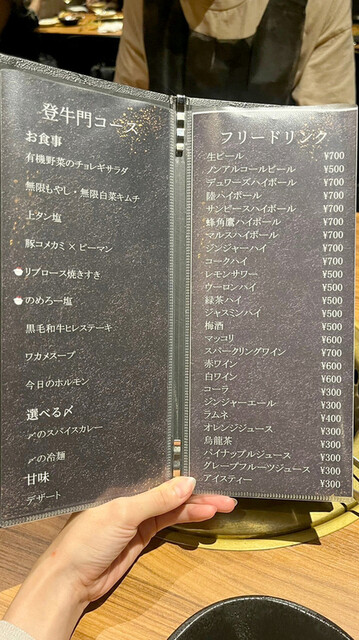 登牛門コース
お食事
有機野菜のチョレギサラダ
無限もやし・無限白菜キムチ
上タン塩
豚コメカミ × ピーマン
リブロース焼きすき
のめろー塩
黒毛和牛ヒレステーキ
ワカメスープ
今日のホルモン
選べる〆
〆のスパイスカレー
〆の冷麺
甘味
デザート
フリードリンク
生ビール ¥700
ノンアルコールビール ¥500
デュワーズハイボール ¥700
陸ハイボール ¥700
サンピースハイボール ¥700
蜂角鷹ハイボール ¥700
マルスハイボール ¥700
ジンジャーハイ ¥700
コークハイ ¥700
レモンサワー ¥500
ウーロンハイ ¥500
緑茶ハイ ¥500
ジャスミンハイ ¥500
梅酒 ¥500
マッコリ ¥600
スパークリングワイン ¥700
赤ワイン ¥600
白ワイン ¥600
コーラ ¥300
ジンジャーエール ¥300
ラムネ ¥400
オレンジジュース ¥300
烏龍茶 ¥300
パイナップルジュース ¥300
グレープフルーツジュース ¥300
アイスティー ¥300